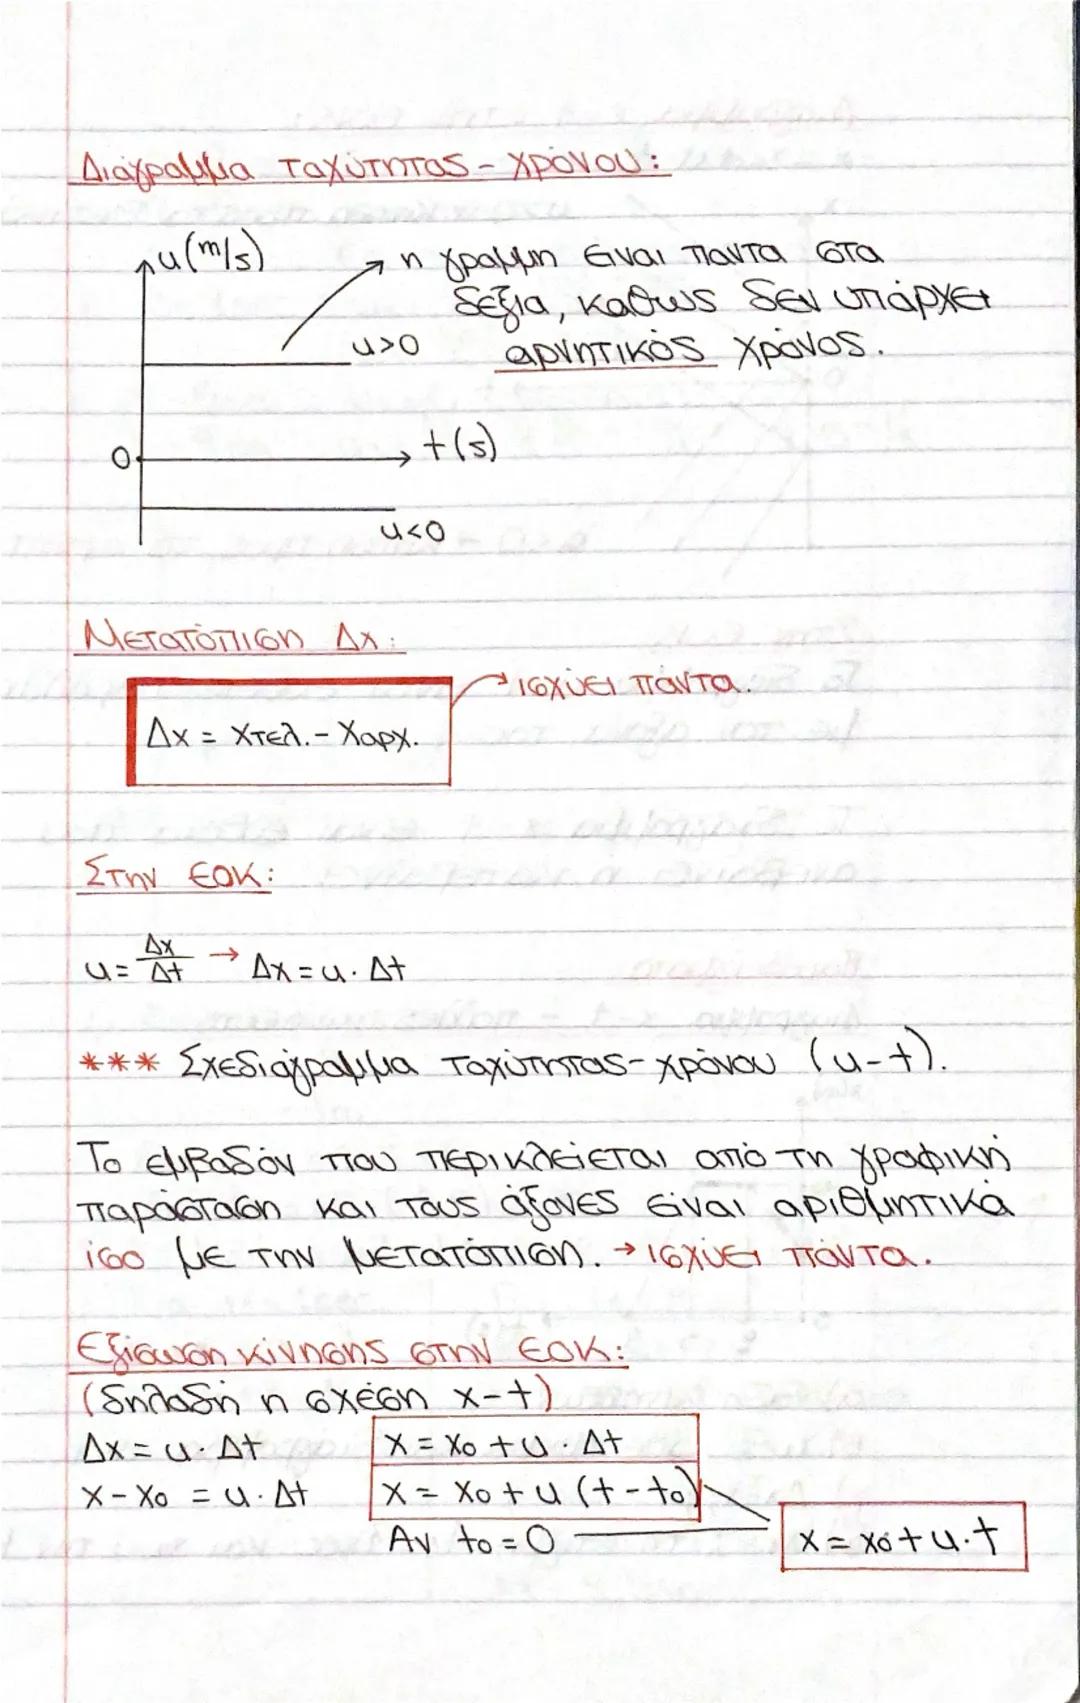 Διάγραμμα ταχύτητας - χρόνου:
u(m/s)
η γραμμη ειναι παντα στα
δεξια, καθως δεν υπάρχει
αρνητικός χρόνος.
u>0
0
t(s)
u<0
Μετατόπιση Δx:
ισχύει πάντα.
Δx = xτελ. - xαρχ.
Στην ΕΟΚ:
u = Δx/Δt → Δx = u · Δt
*** Σχεδιάγραμμα ταχύτητας-χρόνου (u-t).
Το εμβαδόν που περικλείεται από τη γραφική
παράσταση και τους άξονες είναι αριθμητικά
ίσο με την μετατόπιση. → ισχύει πάντα.
Εξίσωση κίνησης στην ΕΟΚ:
(δηλαδή η σχέση x-t)
Δx = u · Δt
x = x₀ + u · Δt
x - x₀ = u · Δt
x = x₀ + u (t - t₀)
Αν t₀ = 0
x = x₀ + u.t